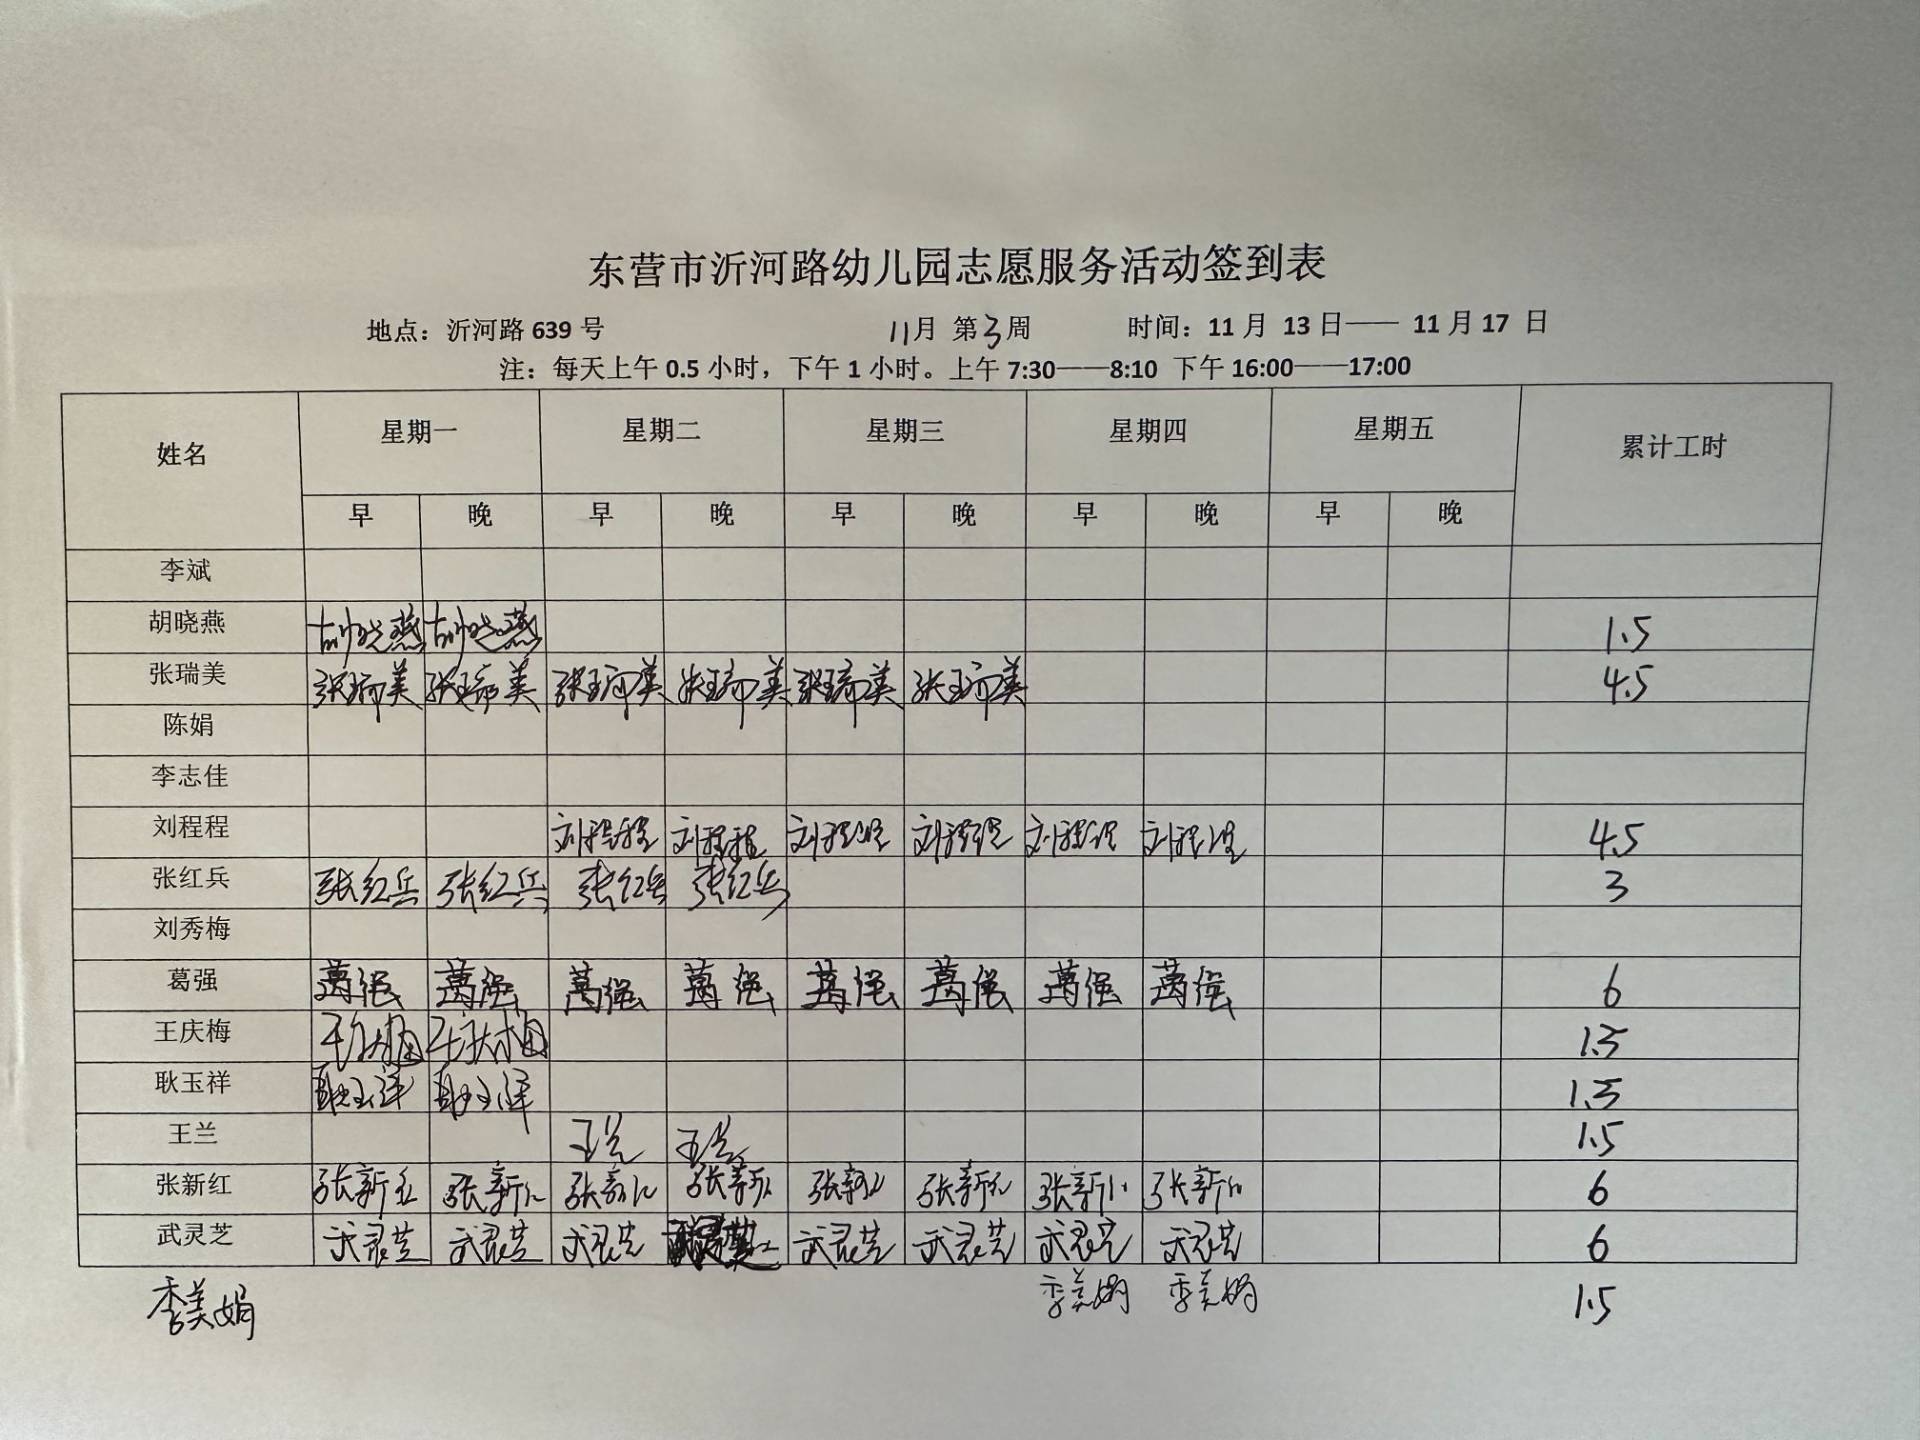 东营市沂河路幼儿园志愿服务活动签到表
地点：沂河路 639 号 11月 第3周 时间：11 月 13 日—— 11 月 17 日
注：每天上午 0.5 小时，下午 1 小时。上午 7:30——8:10 下午 16:00——17:00
姓名 星期一 星期二 星期三 星期四 星期五 累计工时
早 晚 早 晚 早 晚 早 晚 早 晚
李斌
胡晓燕 胡晓燕 胡晓燕 1.5
张瑞美 张瑞美 张瑞美 张瑞美 张瑞美 张瑞美 张瑞美 4.5
陈娟
李志佳
刘程程 刘程程 刘程程 刘程程 刘程程 刘程程 刘程程 4.5
张红兵 张红兵 张红兵 张红兵 张红兵 3
刘秀梅
葛强 葛强 葛强 葛强 葛强 葛强 葛强 葛强 葛强 6
王庆梅 王庆梅 王庆梅 1.5
耿玉祥 耿玉祥 耿玉祥 1.5
王兰 王兰 王兰 1.5
张新红 张新红 张新红 张新红 张新红 张新红 张新红 张新红 张新红 6
武灵芝 武灵芝 武灵芝 武灵芝 武灵芝 武灵芝 武灵芝 武灵芝 6
季美娟 季美娟 季美娟 1.5